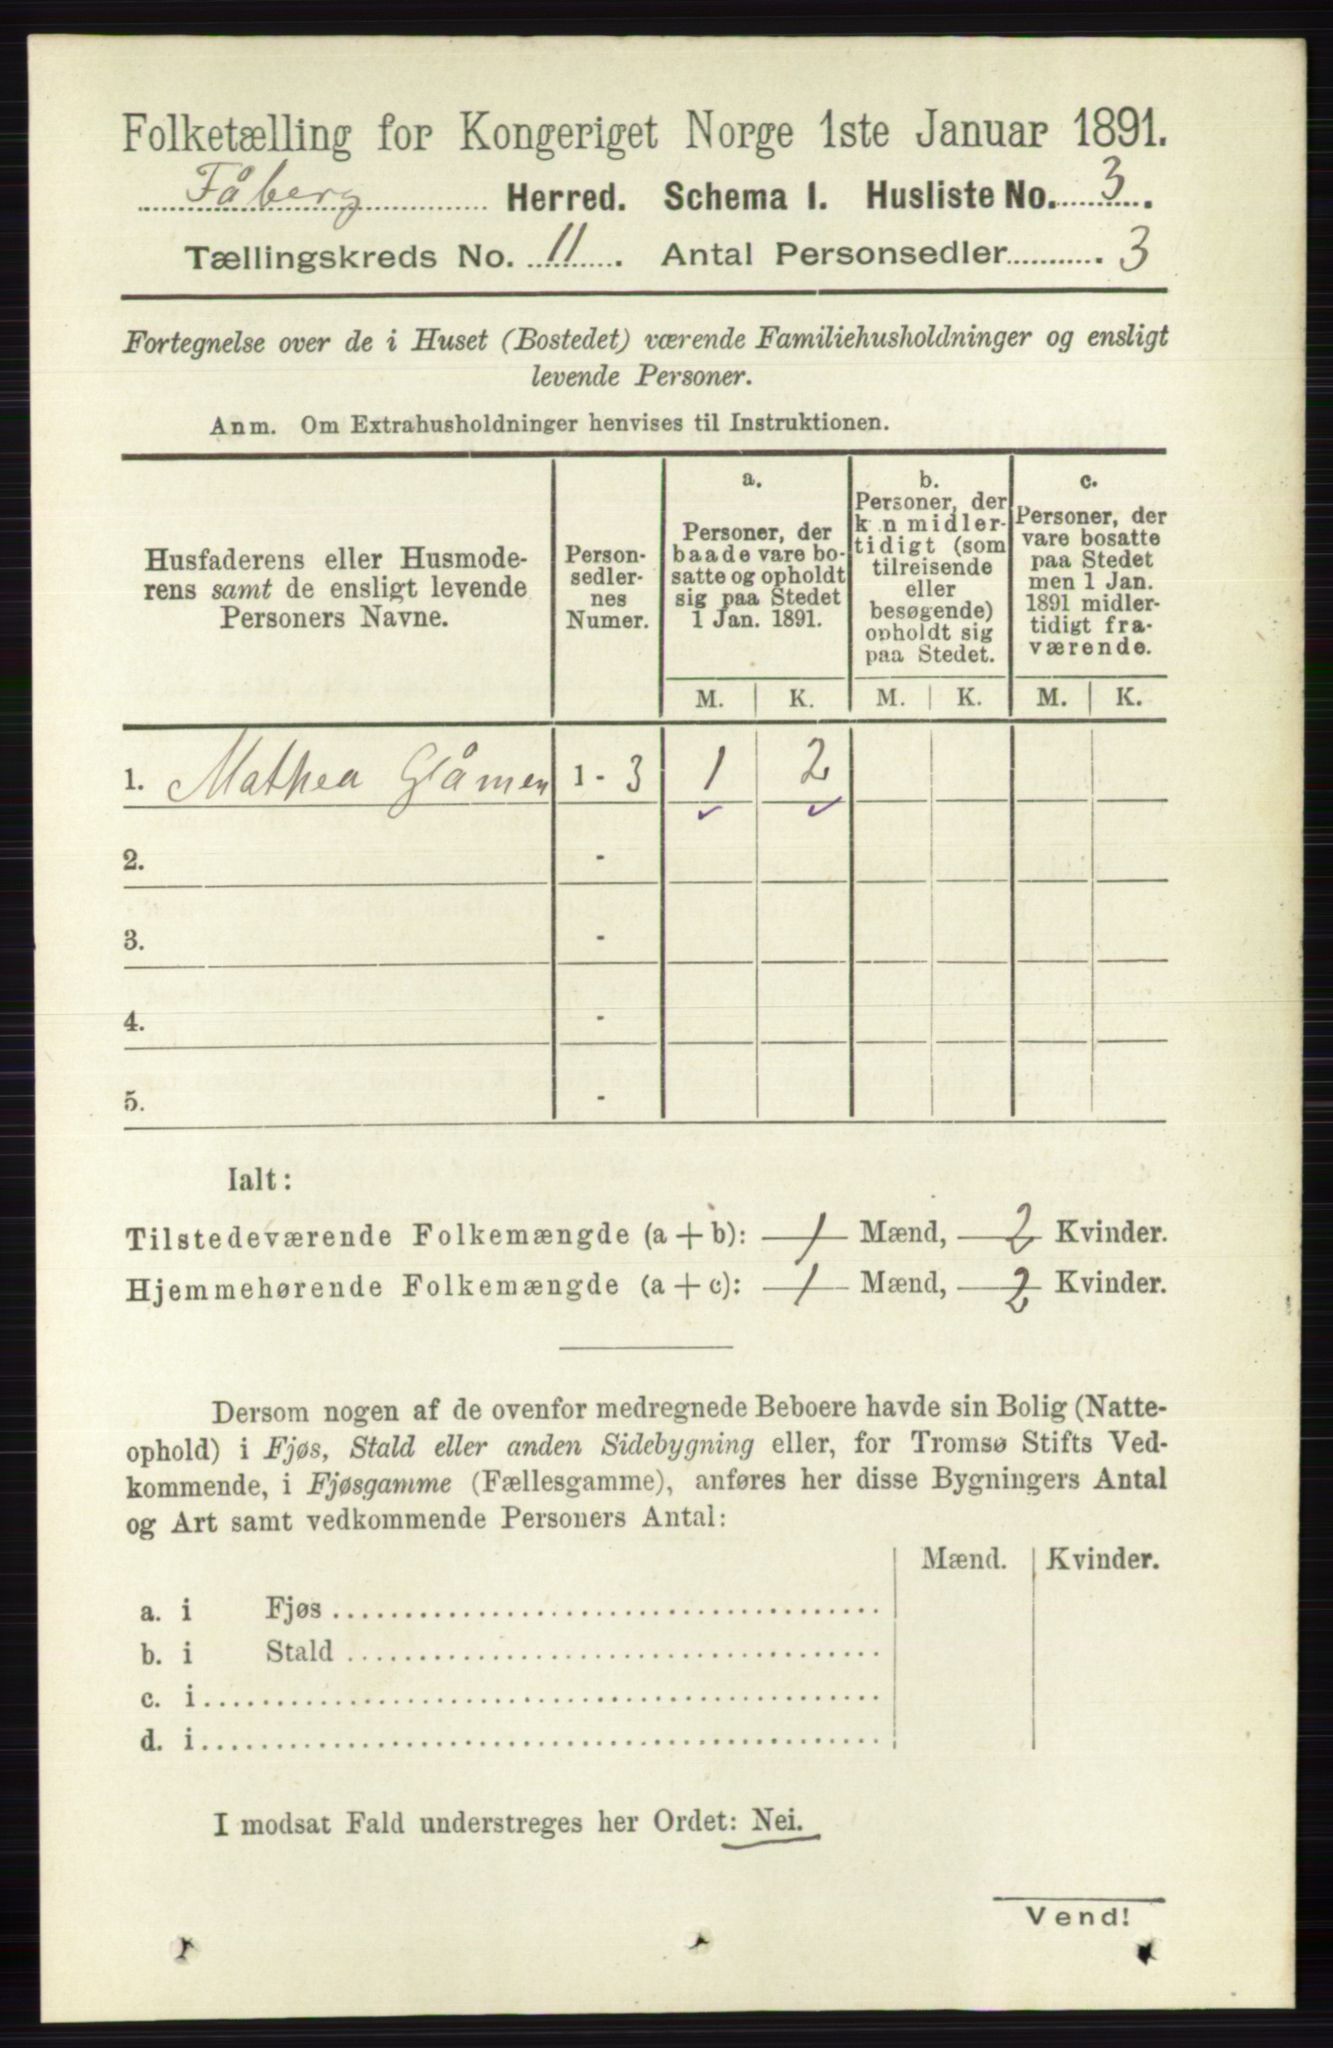 Folketælling for Kongeriget Norge 1ste Januar 1891.
Fåberg Herred. Schema I. Husliste No. 3.
Tællingskreds No. 11. Antal Personsedler 3
Fortegnelse over de i Huset (Bostedet) værende Familiehusholdninger og ensligt
levende Personer.
Anm. Om Extrahusholdninger henvises til Instruktionen.
Husfaderens eller Husmode-
rens samt de ensligt levende
Personers Navne.
Person-
sedler-
nes
Numer.
a.
Personer, der
baade vare bo-
satte og opholdt
sig paa Stedet
1 Jan. 1891.
b.
Personer, der
k n midler-
tidigt (som
tilreisende
eller
besøgende)
opholdt sig
paa Stedet.
c.
Personer, der
vare bosatte
paa Stedet
men 1 Jan.
1891 midler-
tidigt fra-
værende.
M. K. M. K. M. K.
1. Mathea Glåmen 1 - 3 1 2
2. -
3. -
4. -
5. -
Ialt:
Tilstedeværende Folkemængde (a + b): 1 Mænd, 2 Kvinder.
Hjemmehørende Folkemængde (a + c): 1 Mænd, 2 Kvinder.
Dersom nogen af de ovenfor medregnede Beboere havde sin Bolig (Natte-
ophold) i Fjøs, Stald eller anden Sidebygning eller, for Tromsø Stifts Ved-
kommende, i Fjøsgamme (Fællesgamme), anføres her disse Bygningers Antal
og Art samt vedkommende Personers Antal:
Mænd. Kvinder.
a. i Fjøs
b. i Stald
c. i
d. i
I modsat Fald understreges her Ordet: Nei.
Vend!